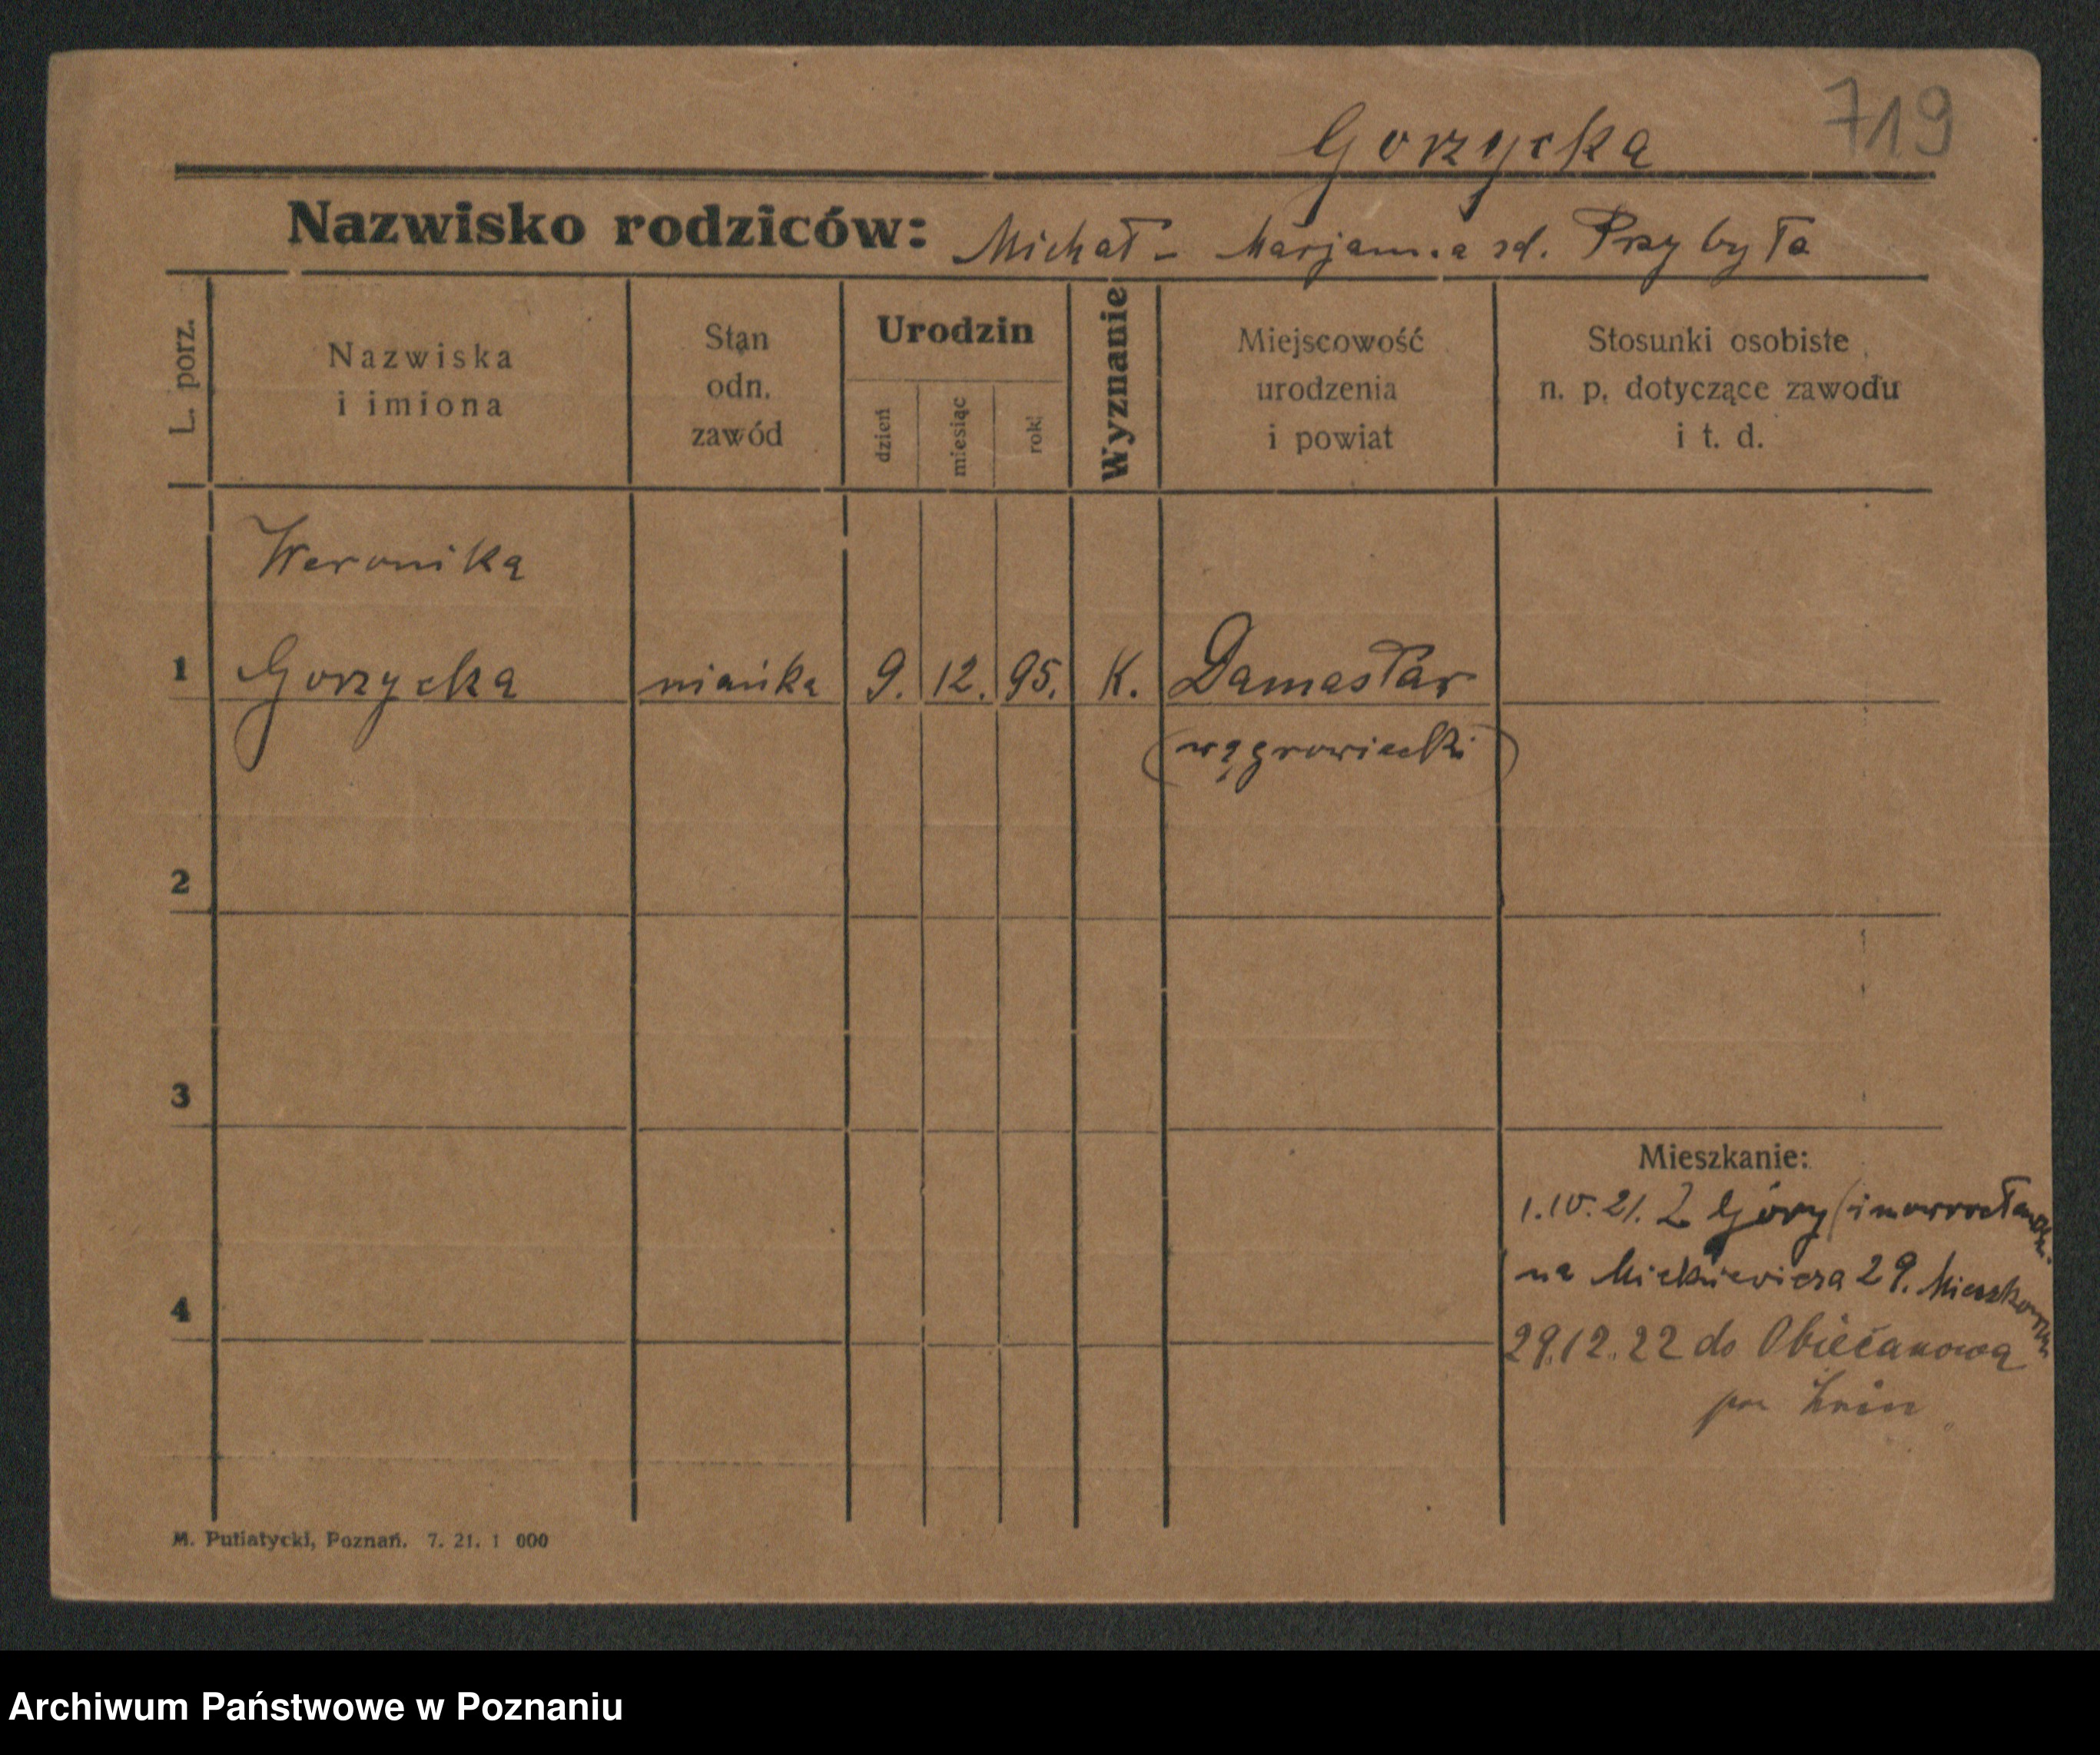 719
Gorzycka
Nazwisko rodziców: Michał - Marjanna zd. Przybyła
L. porz.
Nazwiska
i imiona
Stan
odn.
zawód
Urodzin
dzień
miesiąc
rok
Wyznanie
Miejscowość
urodzenia
i powiat
Stosunki osobiste
n. p. dotyczące zawodu
i t. d.
Weronika
1 Gorzycka niańka 9. 12. 95. K. Damasłav
(wągrowiecki)
2
3
Mieszkanie:
1.IV.21. Z Góry (inowrocławski.
na Mickiewicza 29.
4
29.12.22 do Obiecanowa
pow Żnin
M. Putiatycki, Poznań. 7. 21. 1 000
Archiwum Państwowe w Poznaniu